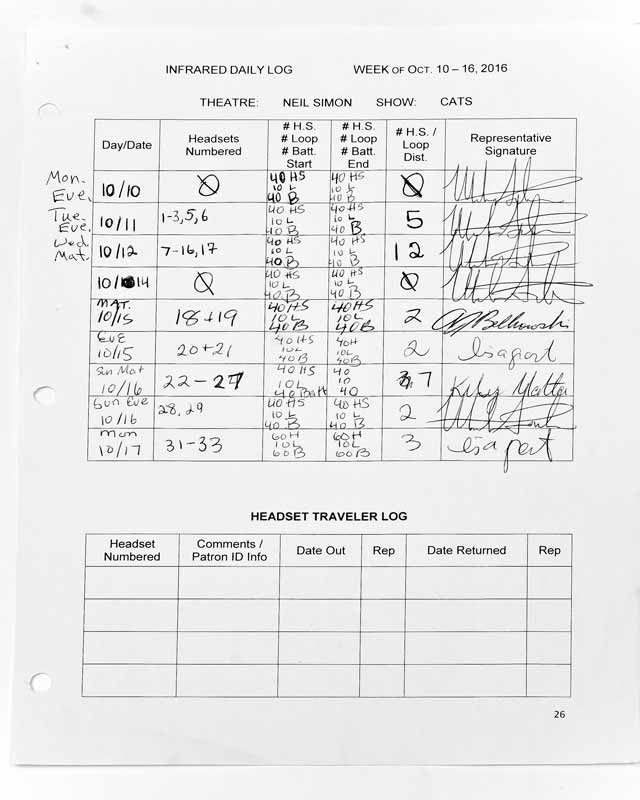 INFRARED DAILY LOG WEEK OF OCT. 10 – 16, 2016
THEATRE: NEIL SIMON SHOW: CATS
Day/Date Headsets Numbered # H.S. # Loop # Batt. Start # H.S. # Loop # Batt. End # H.S. / Loop Dist. Representative Signature
Mon. Eve. 10/10 Ø 40 HS 10 L 40 B 40 HS 10 L 40 B Ø
Tue. Eve. 10/11 1-3,5,6 40 HS 10 L 40 B 40 HS 10 L 40 B 5
Wed. Mat. 10/12 7-16,17 40 HS 10 L 40 B 40 HS 10 L 40 B 12
10/14 Ø 40 HS 10 L 40 B 40 HS 10 L 40 B Ø
MAT. 10/15 18+19 40 HS 10 L 40 B 40 HS 10 L 40 B 2
EVE 10/15 20+21 40 HS 10L 40 B 40H 10L 40B 2
Sun Mat 10/16 22-27 40 HS 10 L 40 Batt 40 10 40 7
Sun Eve 10/16 28, 29 40 HS 10 L 40 B 40 HS 10 L 40 B 2
Mon 10/17 31-33 60H 10L 60B 60H 10L 60B 3
HEADSET TRAVELER LOG
Headset Numbered Comments / Patron ID Info Date Out Rep Date Returned Rep
26